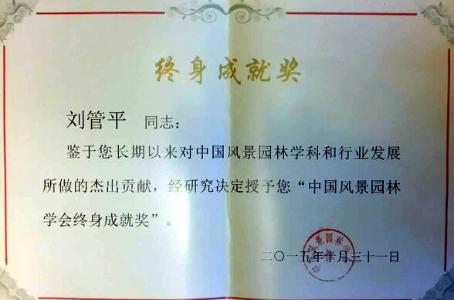 终身成就奖
刘管平 同志：
鉴于您长期以来对中国风景园林学科和行业发展
所做的杰出贡献，经研究决定授予您“中国风景园林
学会终身成就奖”。
二〇一五年十月三十一日